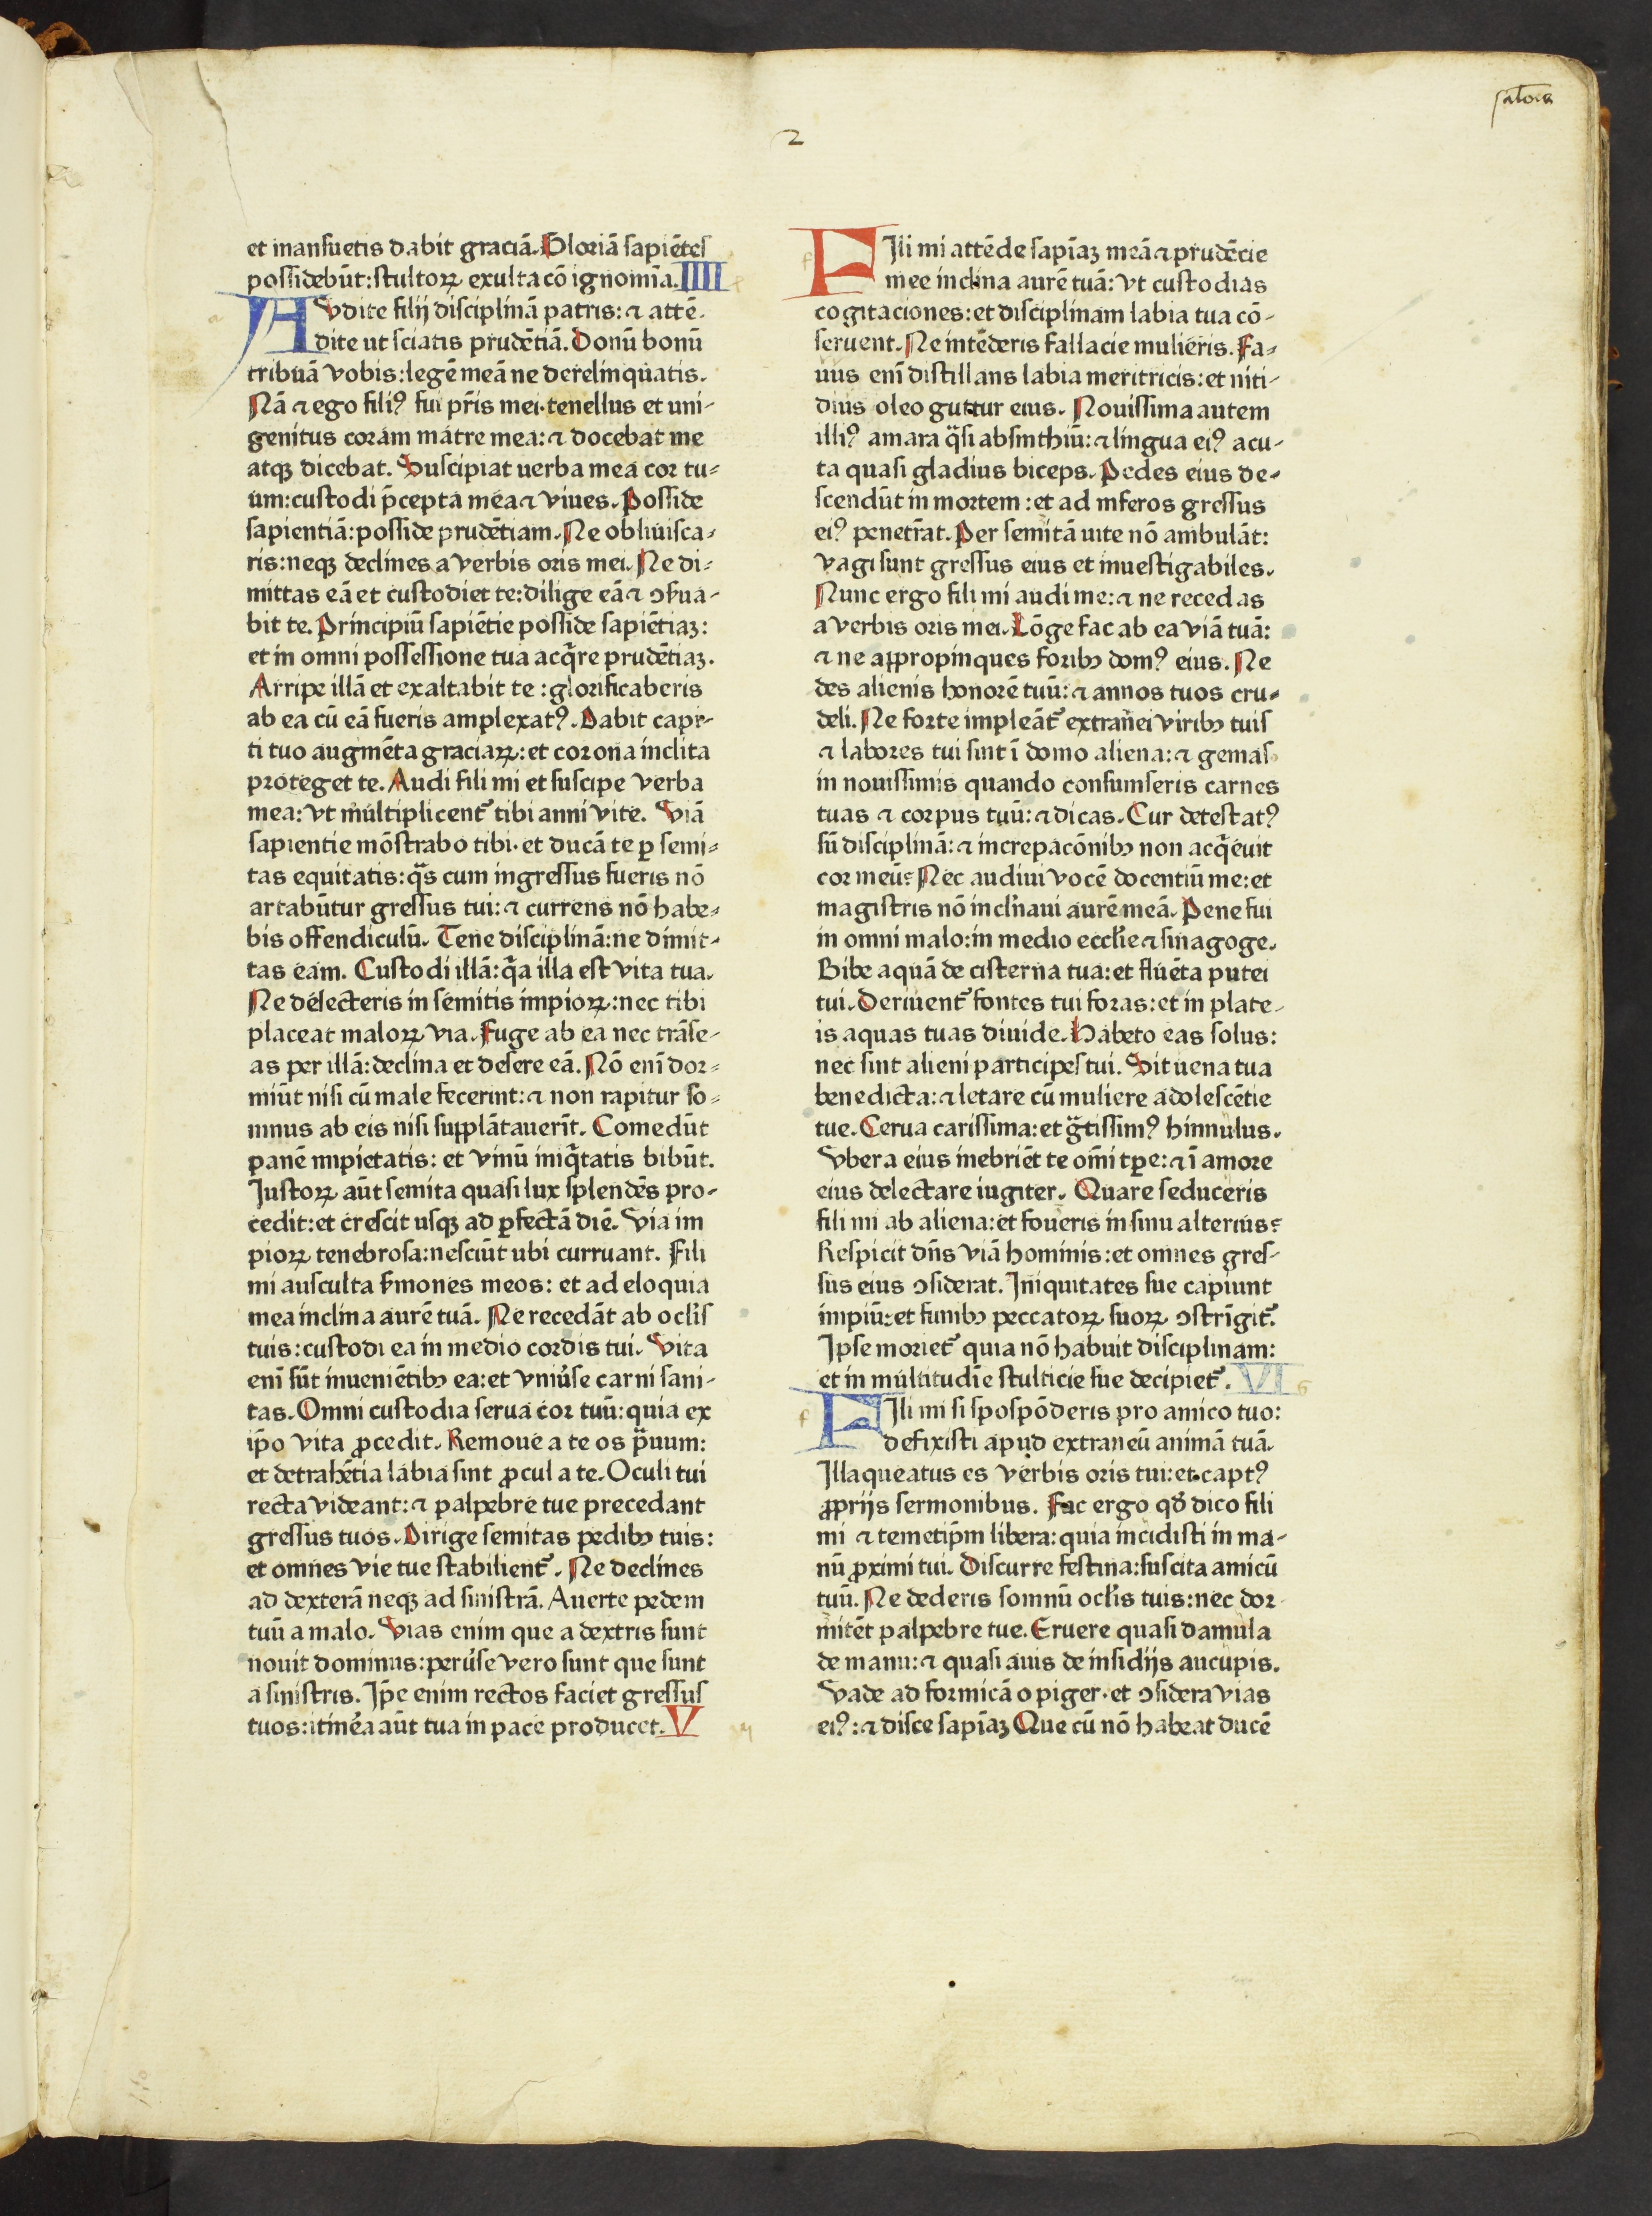 2
et mansuetis dabit graciā. Gloriā sapiētes
possidebūt: stultoꝝ exultacō ignomīa. IIII
AVdite filij disciplinā patris: ⁊ attē-
dite ut sciatis prudētiā. Donū bonū
tribuā vobis: legē meā ne derelinquatis.
Nā ⁊ ego filiꝰ fui pr̄is mei· tenellus et uni-
genitus coram matre mea: ⁊ docebat me
atqꝫ dicebat. Suscipiat uerba mea cor tu-
um: custodi p̄cepta mea ⁊ viues. Posside
sapientiā: posside prudētiam. Ne obliuisca-
ris: neqꝫ declines a verbis oris mei. Ne di-
mittas eā et custodiet te: dilige eā ⁊ ꝯẜua-
bit te. Principiū sapiētie posside sapiētiaꝫ:
et in omni possessione tua acq̄re prudētiaꝫ.
Arripe illā et exaltabit te: glorificaberis
ab ea cū eā fueris amplexatꝰ. Dabit capi-
ti tuo augmēta graciaꝝ: et corona inclita
proteget te. Audi fili mi et suscipe verba
mea: vt multiplicent᷑ tibi anni vite. Viā
sapientie mōstrabo tibi· et ducā te ꝑ semi-
tas equitatis: q̄s cum ingressus fueris nō
artabūtur gressus tui: ⁊ currens nō habe-
bis offendiculū. Tene disciplinā: ne dimit-
tas eam. Custodi illā: q̄a illa est vita tua.
Ne delecteris in semitis impioꝝ: nec tibi
placeat maloꝝ via. Fuge ab ea nec trāse-
as per illā: declina et desere eā. Nō enī dor-
miūt nisi cū male fecerint: ⁊ non rapitur so-
mnus ab eis nisi supplātauerīt. Comedūt
panē impietatis: et vinū iniq̄tatis bibūt.
Justoꝝ aūt semita quasi lux splendēs pro-
cedit: et crescit usqꝫ ad ꝑfectā diē. Via im
pioꝝ tenebrosa: nesciūt ubi curruant. Fili
mi ausculta ẜmones meos: et ad eloquia
mea inclina aurē tuā. Ne recedāt ab ocl̄is
tuis: custodi ea in medio cordis tui. Vita
enī sūt inueniētibꝫ ea: et vniūse carni sani-
tas. Omni custodia serua cor tuū: quia ex
ip̄o vita ꝓcedit. Remoue a te os p̄uum:
et detrahētia labia sint ꝓcul a te. Oculi tui
recta videant: ⁊ palpebre tue precedant
gressus tuos. Dirige semitas pedibꝫ tuis:
et omnes vie tue stabilient᷑. Ne declines
ad dexterā neqꝫ ad sinistrā. Auerte pedem
tuū a malo. Vias enim que a dextris sunt
nouit dominus: perūse vero sunt que sunt
a sinistris. Ip̄e enim rectos faciet gressus
tuos: itinēa aūt tua in pace producet. V
FIli mi attēde sapīaꝫ meā ⁊ prudēcie
mee inclina aurē tuā: vt custodias
cogitaciones: et disciplinam labia tua cō-
seruent. Ne intēderis fallacie mulieris. Fa-
uus enī distillans labia meritricis: et niti-
dius oleo guttur eius. Nouissima autem
illiꝰ amara q̄si absinthiū: ⁊ lingua eiꝰ acu-
ta quasi gladius biceps. Pedes eius de-
scendūt in mortem: et ad inferos gressus
eiꝰ penetr̄at. Per semitā uite nō ambulāt:
vagi sunt gressus eius et inuestigabiles.
Nunc ergo fili mi audi me: ⁊ ne recedas
a verbis oris mei. Lōge fac ab ea viā tuā:
⁊ ne appropinques foribꝫ domꝰ eius. Ne
des alienis honorē tuū: ⁊ annos tuos cru-
deli. Ne forte impleāt᷑ extranei viribꝫ tuis
⁊ labores tui sint ī domo aliena: ⁊ gemas
in nouissimis quando consumseris carnes
tuas ⁊ corpus tuū: ⁊ dicas. Cur detestatꝰ
sū disciplinā: ⁊ increpacōnibꝫ non acq̄euit
cor meū? Nec audiui vocē docentiū me: et
magistris nō inclinaui aurē meā. Pene fui
in omni malo: in medio eccl̄ie ⁊ sinagoge.
Bibe aquā de cisterna tua: et fluēta putei
tui. Deriuent᷑ fontes tui foras: et in plate-
is aquas tuas diuide. Habeto eas solus:
nec sint alieni participes tui. Sit uena tua
benedicta: ⁊ letare cū muliere adolescētie
tue. Cerua carissima: et g̃tissimꝰ hinnulus.
Vbera eius inebriēt te om̄i tꝑe: ⁊ ī amore
eius delectare iugiter. Quare seduceris
fili mi ab aliena: et foueris in sinu alterius?
Respicit dn̄s viā hominis: et omnes gres-
sus eius ꝯsiderat. Iniquitates sue capiunt
impiū: et funibꝫ peccatoꝝ suoꝝ ꝯstrīgit᷑.
Ipse moriet᷑ quia nō habuit disciplinam:
et in multitudīe stulticie sue decipiet᷑. VI
FIli mi si spospōderis pro amico tuo:
defixisti apud extraneū animā tuā.
Illaqueatus es verbis oris tui: et captꝰ
ꝓprijs sermonibus. Fac ergo qd̄ dico fili
mi ⁊ temetip̄m libera: quia incidisti in ma-
nū ꝓximi tui. Discurre festina: suscita amicū
tuū. Ne dederis somnū ocl̄is tuis: nec dor-
mitēt palpebre tue. Eruere quasi damula
de manu: ⁊ quasi auis de insidijs aucupis.
Vade ad formicā o piger· et ꝯsidera vias
eiꝰ: ⁊ disce sapīaꝫ Que cū nō habeat ducē